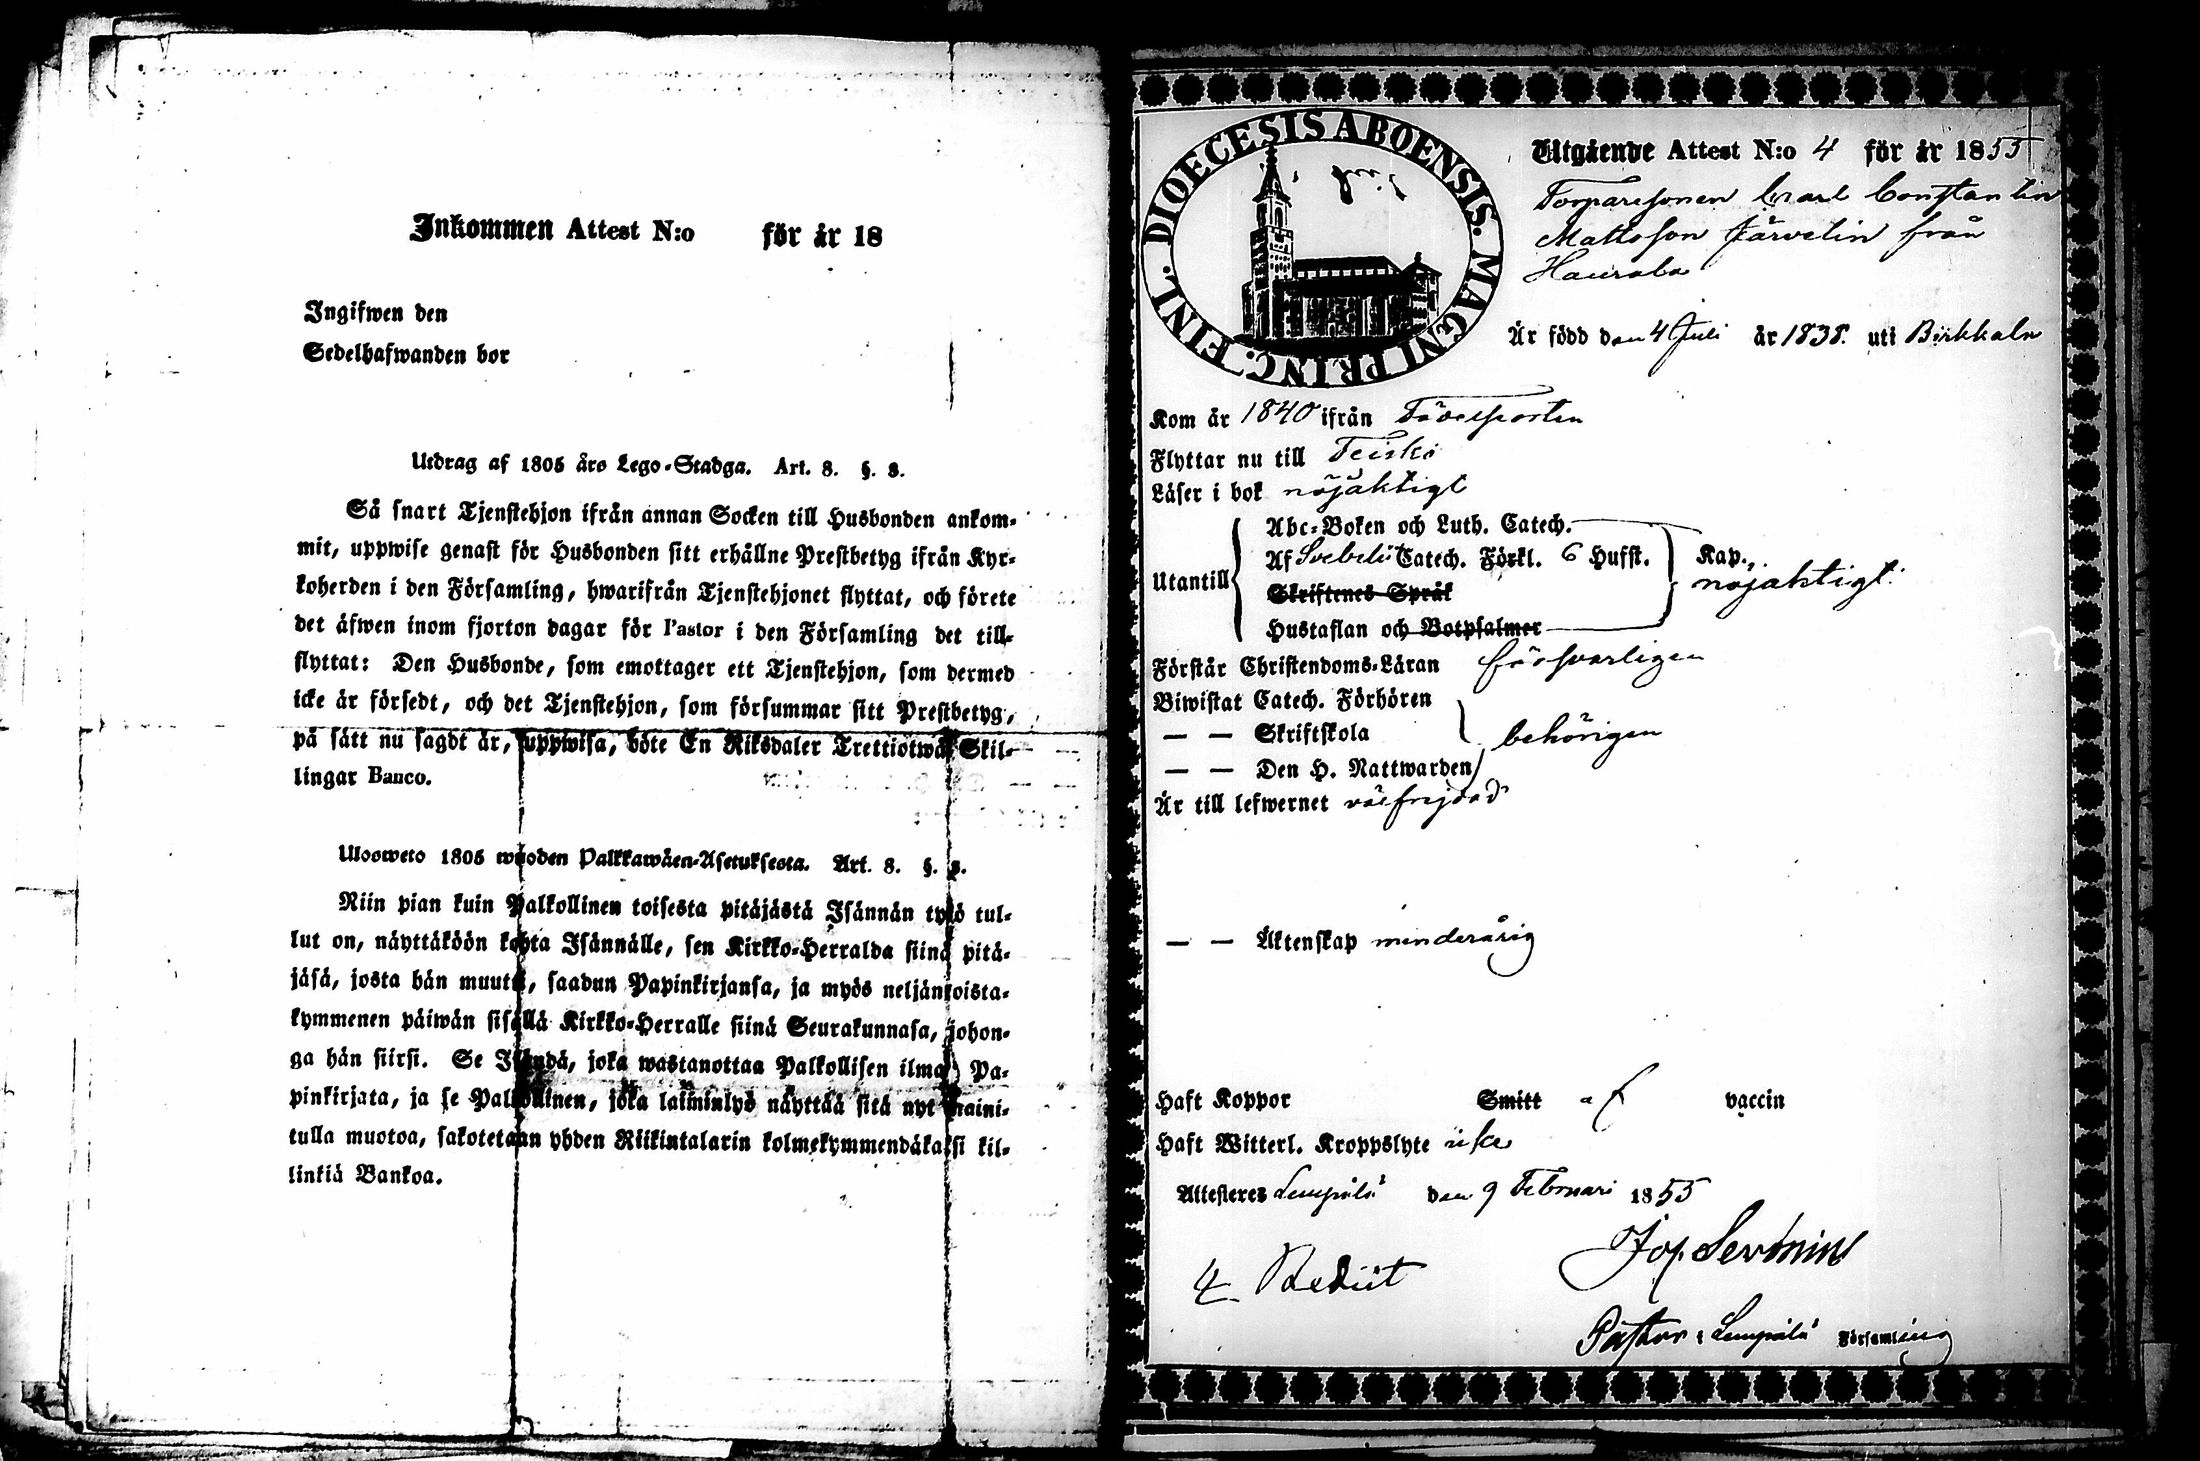 Inkommen Attest N:o för år 18
Ingifwen den
Sedelhafwanden bor
Utdrag af 1805 års Lego-Stadga. Art. 8. §. 8.
Så snart Tjenstehjon ifrån annan Socken till Husbonden ankom-
mit, uppwise genast för Husbonden sitt erhållne Prestbetyg ifrån Kyr-
koherden i den Församling, hwarifrån Tjenstehjonet flyttat, och förete
det äfwen inom fjorton dagar för Pastor i den Församling det till-
flyttat: Den Husbonde, som emottager ett Tjenstehjon, som dermed
icke är försedt, och det Tjenstehjon, som försummar sitt Prestbetyg,
på sätt nu sagdt är, uppwisa, böte En Riksdaler Trettiotwå Skil-
lingar Banco.
Ulosweto 1805 wuoden Palkkawäen-Asetuksesta. Art. 8. §.
Niin pian kuin Palkollinen toisesta pitäjästä Isännän tykö tul-
lut on, näyttäköön kohta Isännälle, sen Kirkko-Herralda siinä pitä-
jäsä, josta hän muutti, saadun Papinkirjansa, ja myös neljäntoista-
kymmenen päiwän sisällä Kirkko-Herralle siinä Seurakunnasa, johon-
ga hän siirsi. Se Isändä, joka wastanottaa Palkollisen ilman Pa-
pinkirjata, ja se Palkollinen, joka laiminlyö näyttää sitä nyt maini-
tulla muotoa, sakotetaan yhden Riikintalarin kolmekymmendäkaksi kil-
linkiä Bankoa.
DIOECESIS ABOENSIS. MAGNI PRINC. FINL.
Utgående Attest N:o 4 för år 1855
Torparesonen Carl Constantin
Mattsson Järvelin från
Haurala
Är född den 4 Juli år 1838. uti Birkkala
Kom år 1840 ifrån
Flyttar nu till Teisko
Läser i bok nöjaktigt
Utantill
Abc-Boken och Luth. Catech.
Af Svebelii Catech. Förkl. 6 Hufst. Kap.
Skriftenes Språk
nöjaktigt
Hustaflan och Botpsalmer
Förstår Christendoms-Läran försvarligen
Biwistat Catech. Förhören
— — Skriftskola
behörigen
— — Den H. Nattwarden
Är till lefwernet välfrejdad
— — Äktenskap minderårig
Haft Koppor Smitt af vaccin
Haft Witterl. Kroppslyte icke
Attesteres Lempälä den 9 Februari 1855
Jos. Sevonius
4 Rediit
Pastor i Lempälä Församling